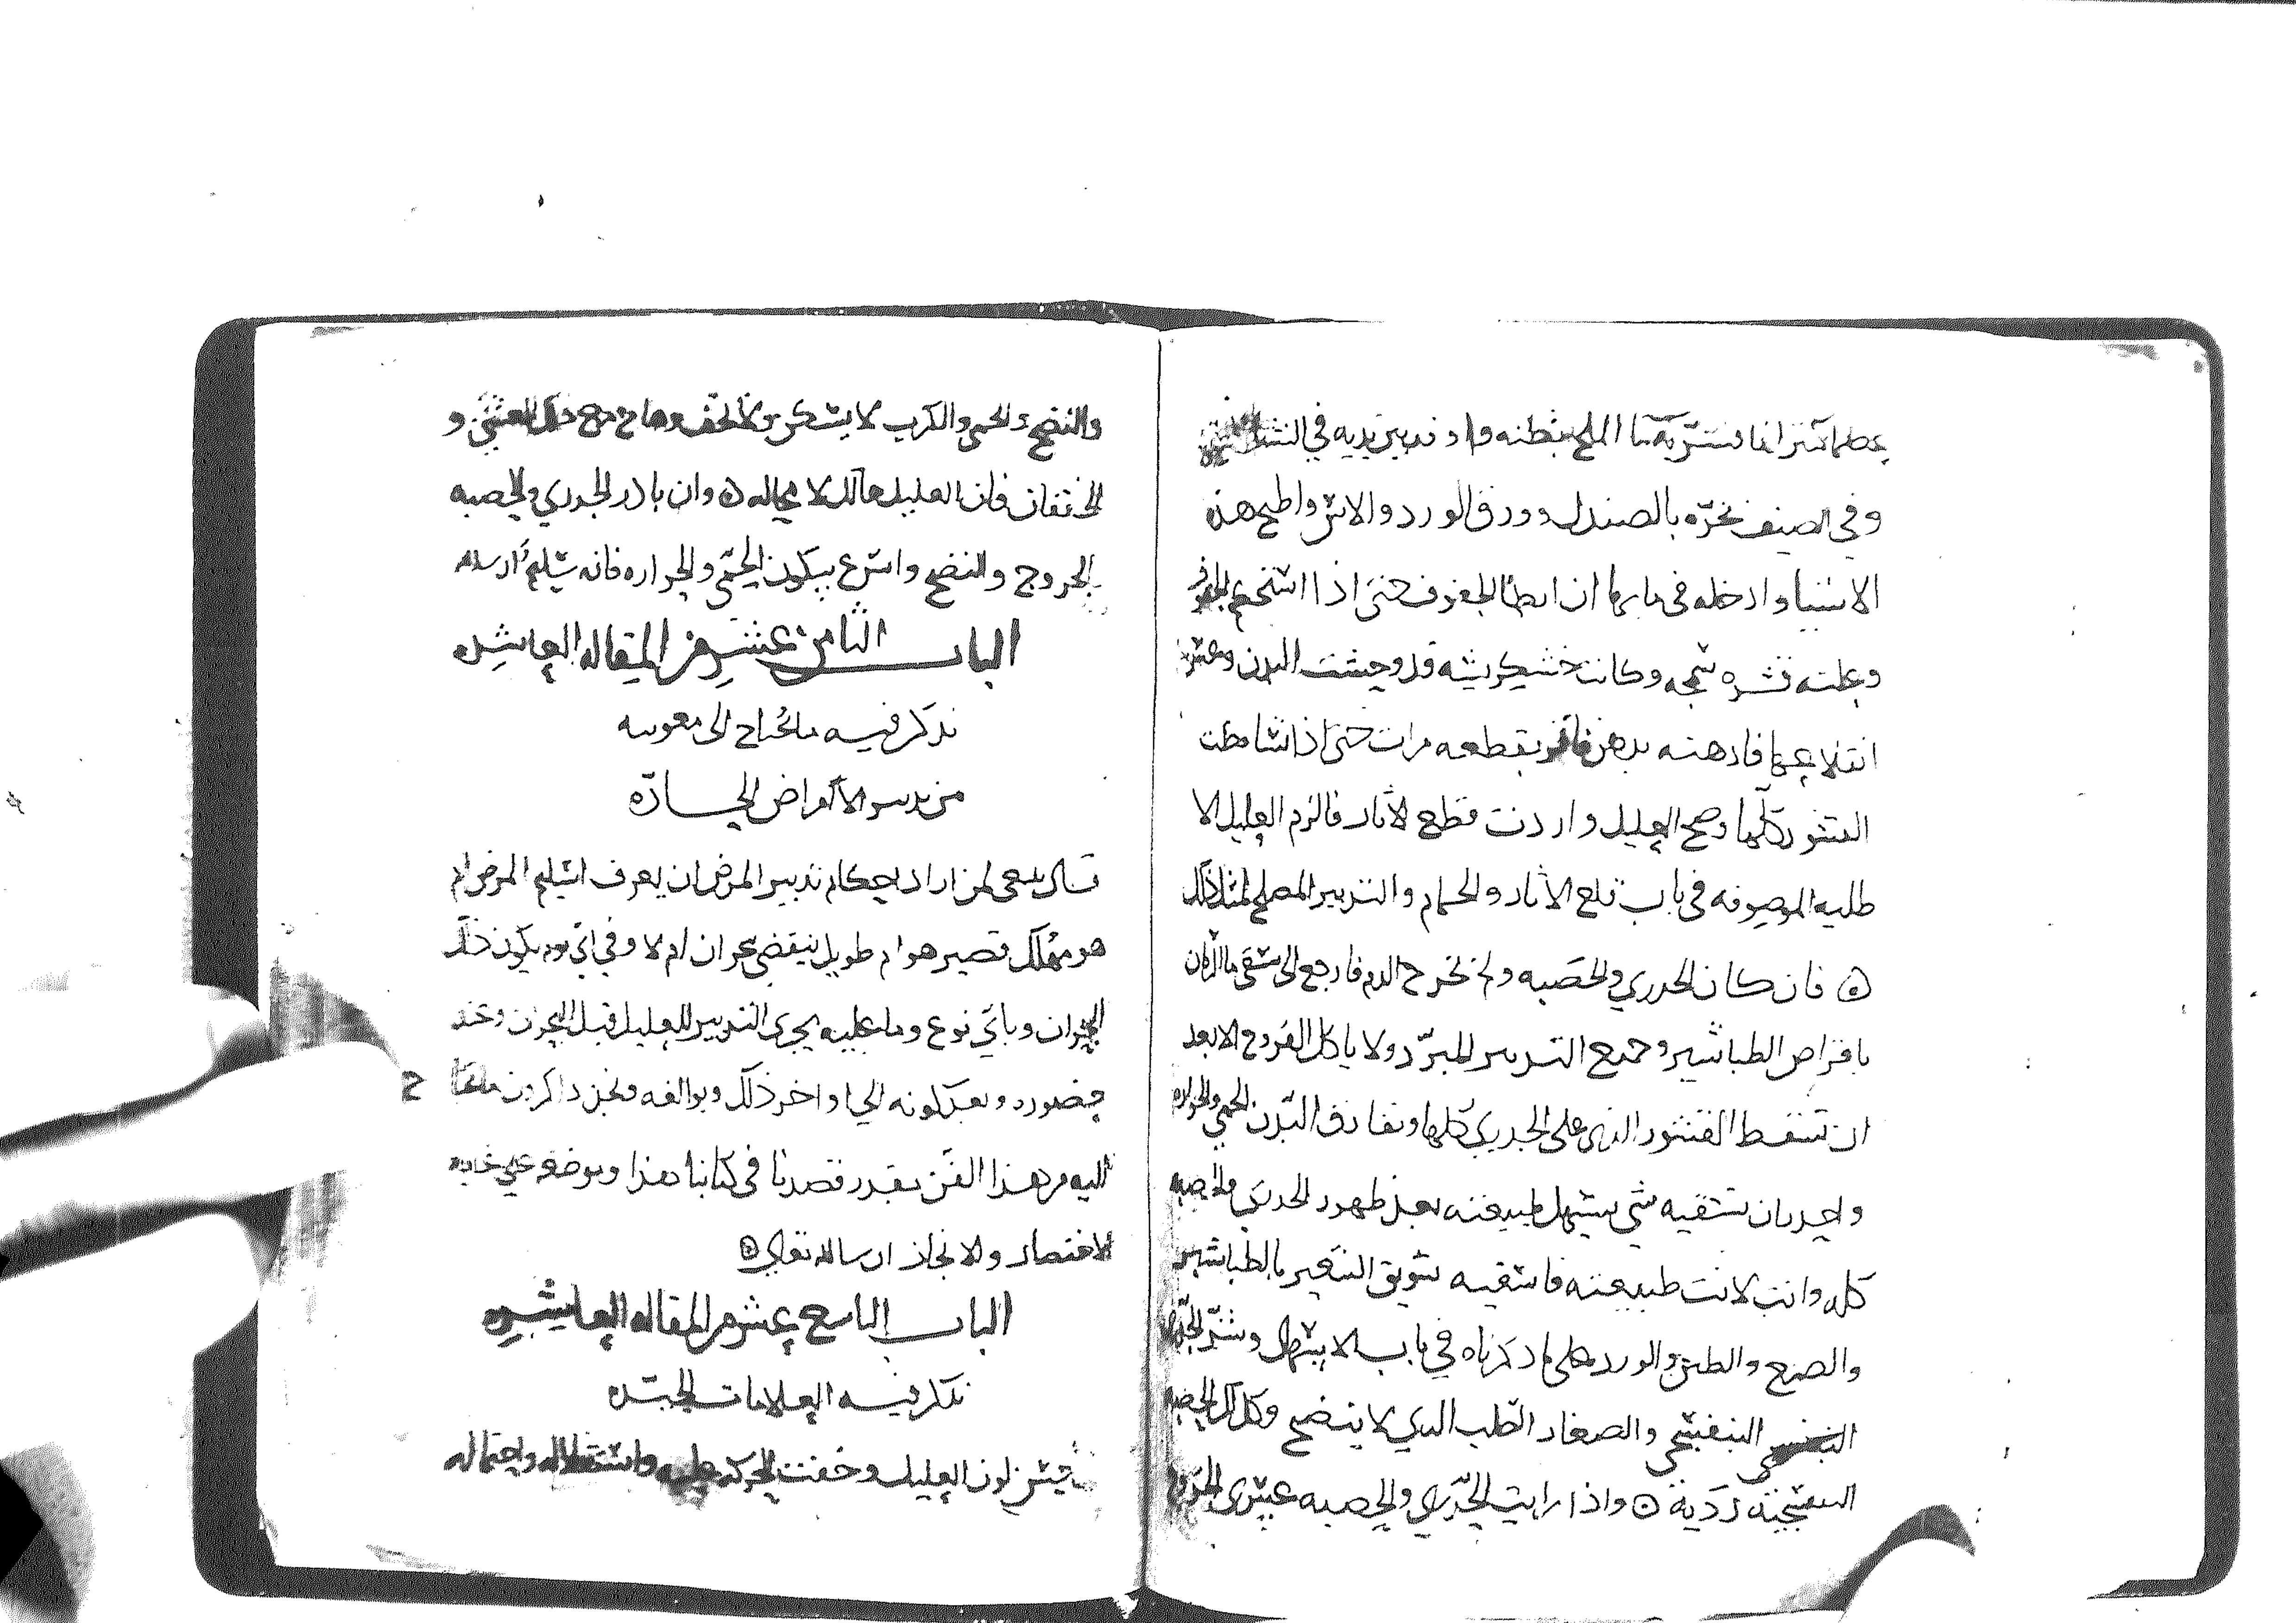 عظاما كبيرا فانشر به ماء الملح بقطنه واوقد بين يديه في الشتا
وفي الصيف بخره بالصندل وورق الورد والاس واطبخ هذه
الاشيا وادخله في مايها ان ابطا الجفوف حتى اذا استحكم الجفوف
وعلته قشره سمجه وكانت خشكريشه قد وحشت البدن وعسر
انقلاعها فادهنه بدهن فاتر بقطعه مرات حتى اذا تساقطت
القشور كلها وصح العليل واردت قطع الاثار فالزم العليل الا
طليه الموصوفه في باب قلع الاثار والحمام والتدبير المصلح لمثل ذلك
ه فان كان الجدري والحصبه ولم تخرج الدم فارجع الى سقي ما الرمان
باقراص الطباشير وجميع التدبير المبرد ولا ياكل الفروج الا بعد
ان تسقط القشور التي على الجدري كلها وتفارق البدن الحمى والحراره
واحذر ان تسقيه شي يسهل طبيعته بعد ظهور الجدري والحصبه
كله وان لانت طبيعته فاسقيه سويق الشعير بالطباشير
والصمغ والطين والورد على ما ذكرناه في باب الاسهال وشر الجدري
البنفسجي والصغار الصلب الذي لا ينضج وكذلك الحصبه
البنفسجيه رديه ه واذا رايت الجدري والحصبه عسري الخروج
والنضج والحمى والكرب لا يسكن ولا يخف وهاج مع ذلك الغشي و
الخفقان فان العليل هالك لا محاله ه وان بادر الجدري والحصبه
بالخروج والنضج واسرع بسكون الحمى والحراره فانه يسلم
الباب الثامن عشر من المقاله العاشره
نذكر فيه ما يحتاج الى معرفته
من تدبير الامراض الحاده
قال ينبغي لمن اراد احكام تدبير المرض ان يعرف اسليم المرض ام
هو مهلك قصير هو ام طويل ينقضي ببحران ام لا وفي اي يوم يكون ذلك
البحران وباي نوع وما عليه يجري التدبير للعليل قبل البحران وعند
حضوره وبعد كونه الى اواخر ذلك وبوالغه ونحن ذاكرون ما يحتاج
اليه من هذا الفن بقدر قصدنا في كتابنا هذا ونوضع على غايه
الاختصار والانجاز ان شا الله تعالى ه
الباب التاسع عشر من المقاله العاشره
نذكر فيه العلامات الجيده
حسن لون العليل وخفت الحركه عليه واستقلاله واحتماله